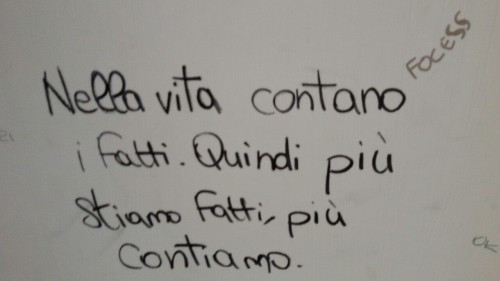 FOCESS
Nella vita contano
i fatti. Quindi più
stiamo fatti, più
contiamo.
OK